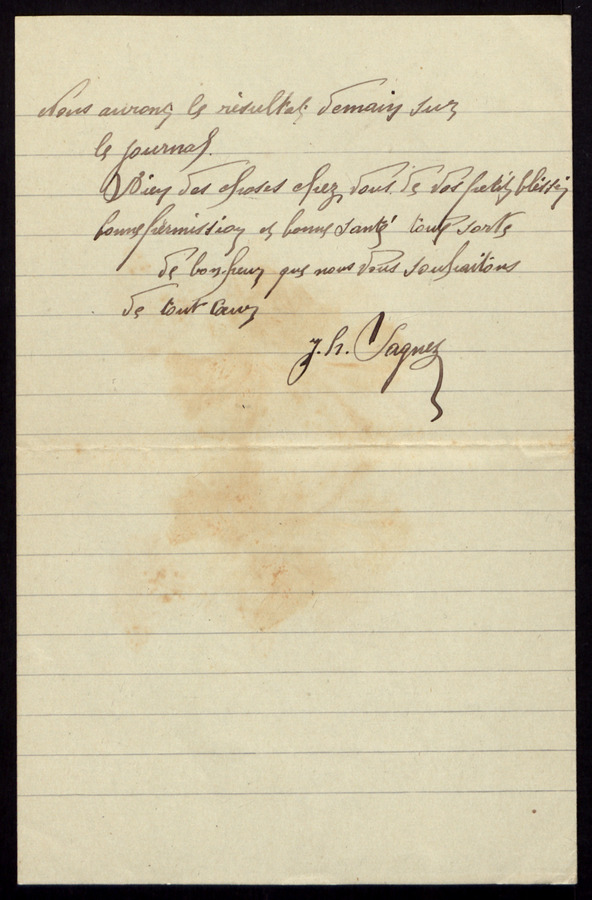 Nous aurons le résultat demain sur
le journal.
Bien des choses chez vous, de vos petits blessés
bonne permission et bonne santé toute sorte
de bonheur que nous vous souhaitons
de tout cœur
J. h. Cagnez